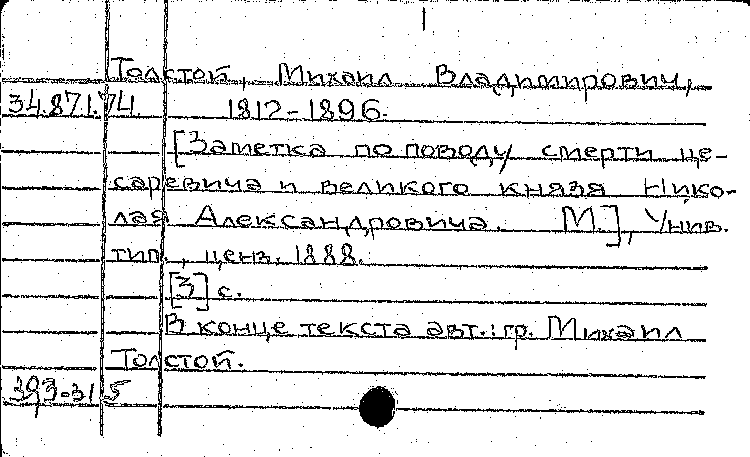 Толстой, Михаил Владимирович,
34.871.74 1812-1896.
[Заметка по поводу смерти це-
саревича и великого князя Нико-
лая Александровича. М.], Унив.
тип., ценз. 1888.
[3] с.
В конце текста авт.: гр. Михаил
Толстой.